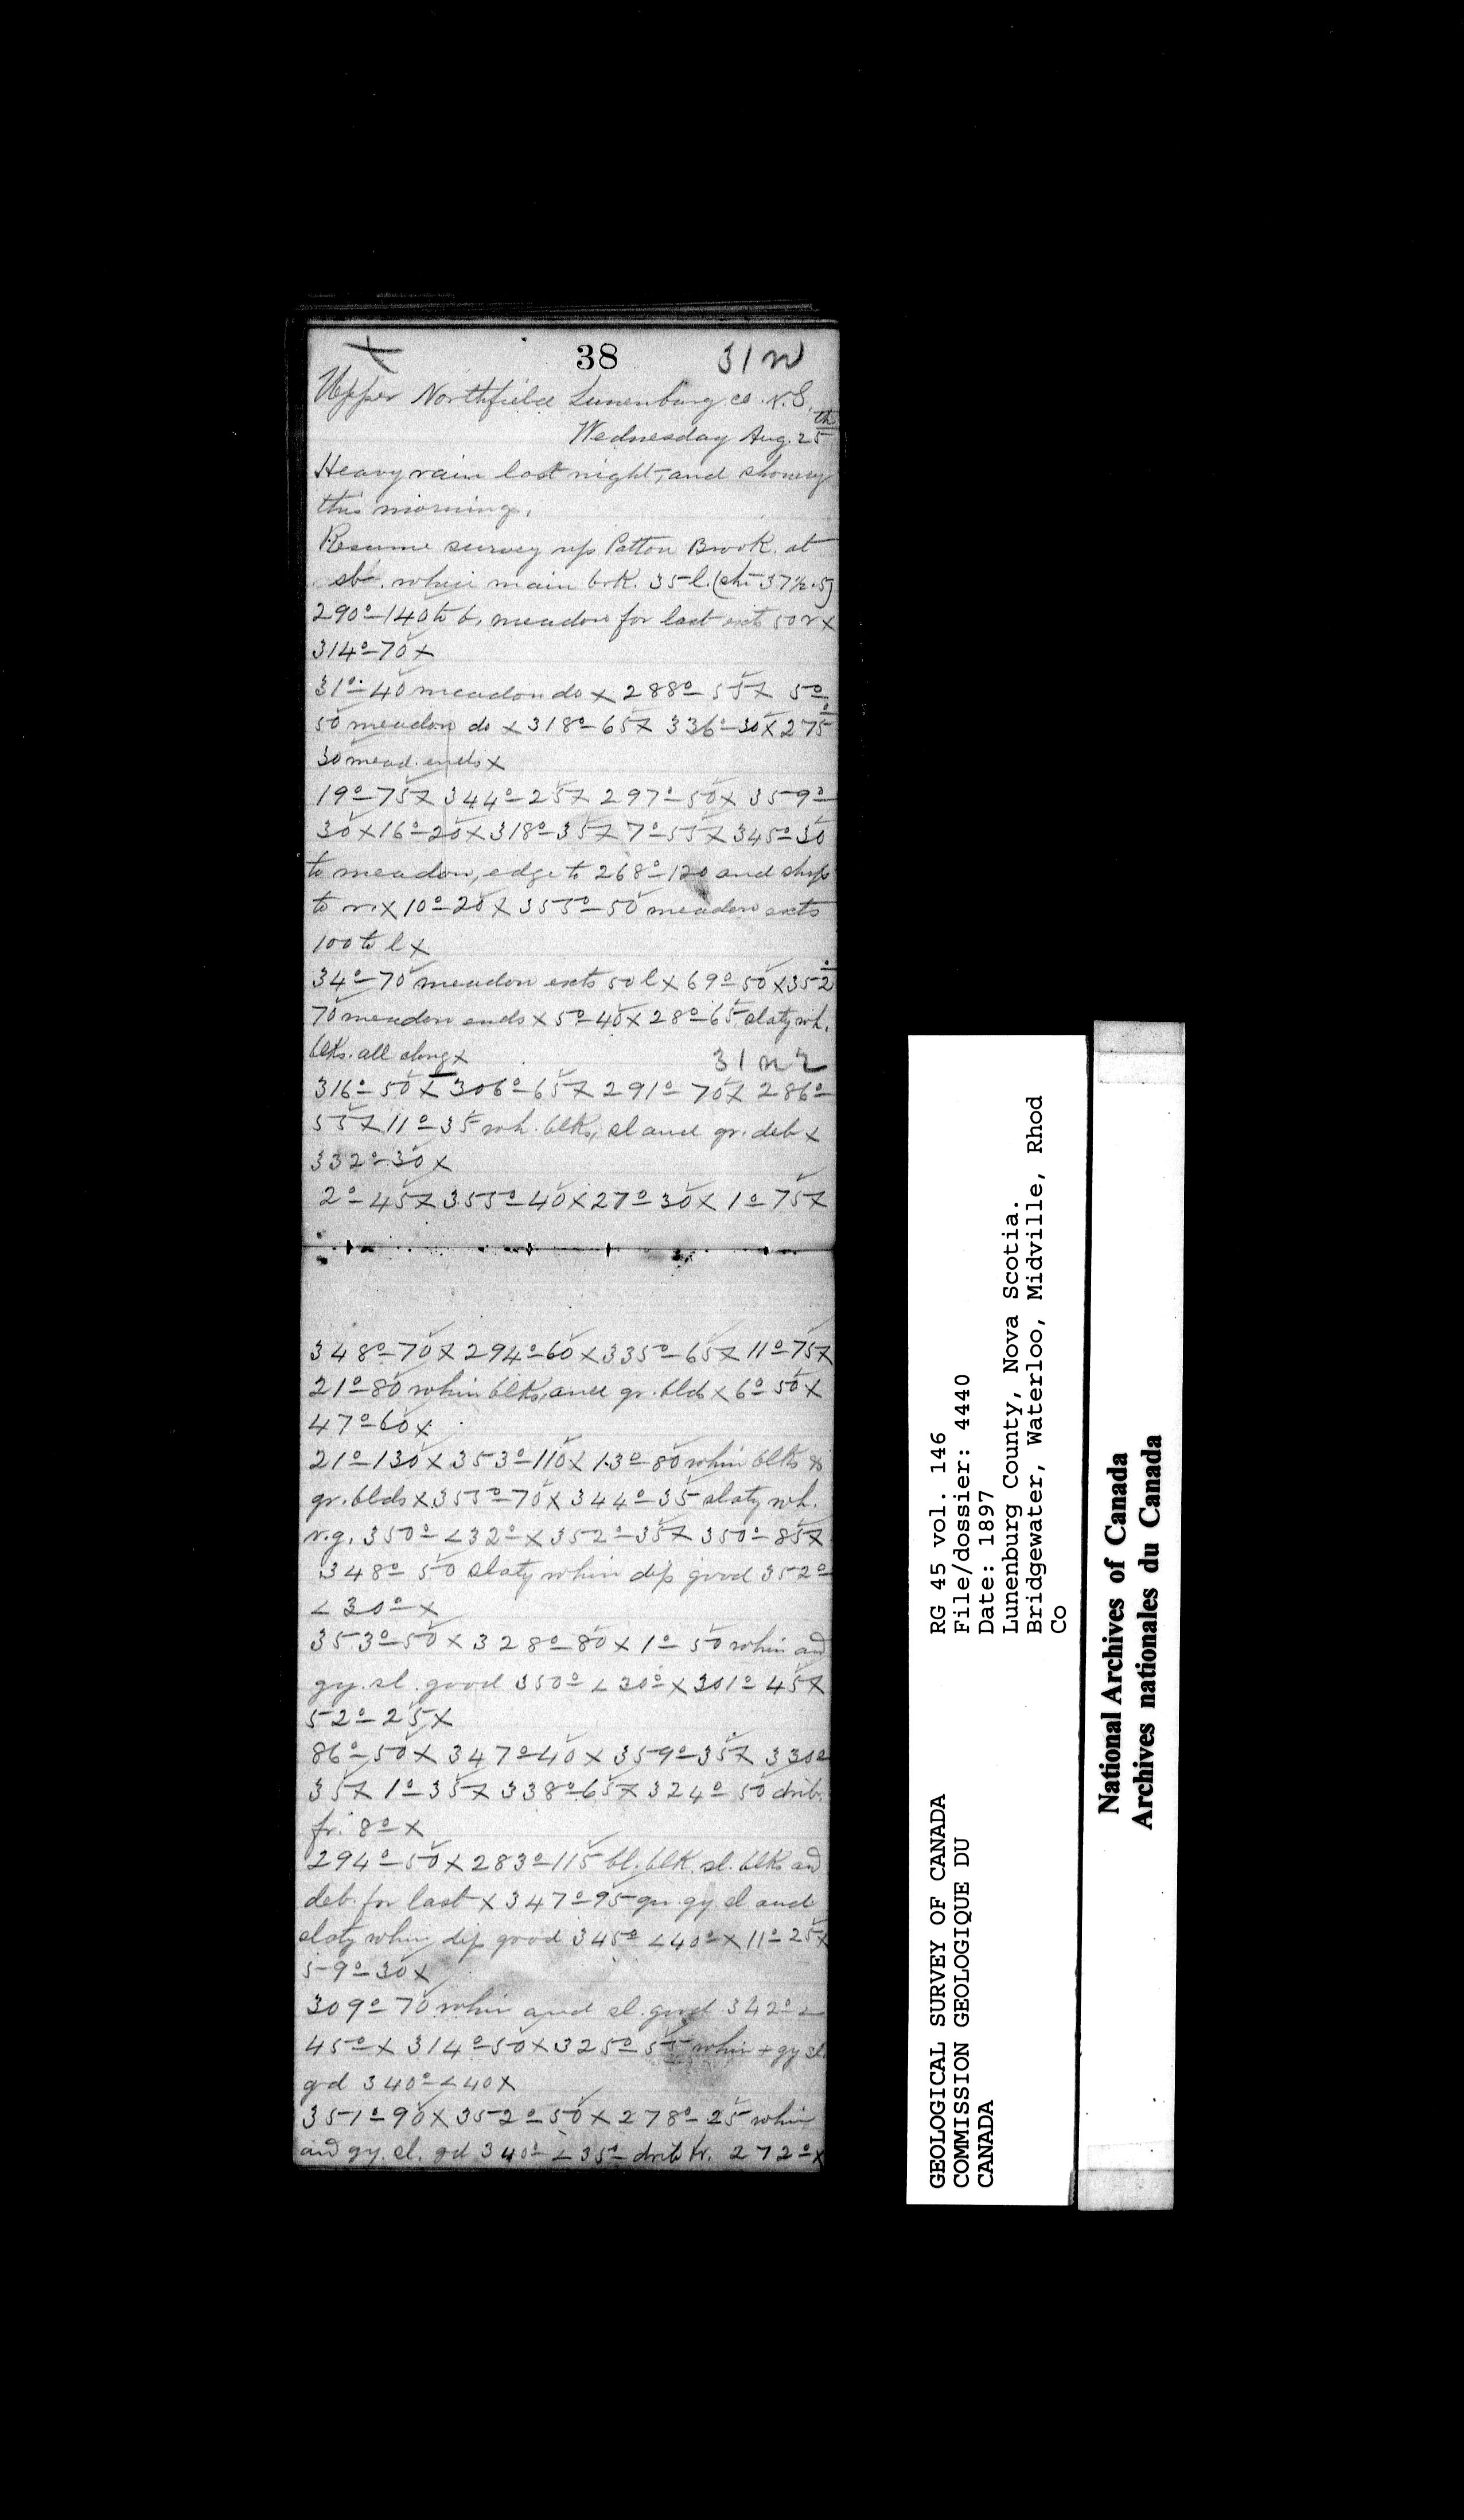 38 31 n
Upper Northfield Lunenburg co. N.S.
Wednesday Aug. 25th
Heavy rain last night, and showery
this morning.
Resume survey up Patton Brook. at
sb. where main brk. 35 l. (sh 37½.5)
290°-140 to b. meadow for last exts 50 r x
314°-70 x
31°-40 meadow do x 288°-55 x 5°
50 meadow do x 318°-65 x 336°-30 x 275°
30 mead. ends x
19°-75 x 344°-25 x 297°-50 x 359°
30 x 16°-20 x 318°-35 x 7°-55 x 345°-30
to meadow, edge to 268°-120 and
to x 10°-20 x 355°-50 meadow exts
100 to l x
34°-70 meadow exts 50 l x 69°-50 x 352°
70 meadow ends x 5°-40 x 28°-65 slaty wh.
blks. all along x 31 n 2
316°-50 x 306°-65 x 291°-70 x 286°
55 x 11°-35 wh. blks, sl and gr. deb x
332°-30 x
2°-45 x 355°-40 x 27°-30 x 1°-75 x
348°-70 x 294°-60 x 335°-65 x 11°-75 x
21°-80 whin blks, and gr. blds x 6°-50 x
47°-60 x
21°-130 x 353°-110 x 13°-80 whin blks &
gr. blds x 355°-70 x 344°-35 slaty wh.
v.g. 350° <32° x 352°-35 x 350°-85 x
348°-50 slaty whin dip good 352°
<30° x
353°-50 x 328°-80 x 1°-50 whin and
gy. sl. good 350° <30° x 301°-45 x
52°-25 x
86°-50 x 347°-40 x 359°-35 x 330°
35 x 1°-35 x 338°-65 x 324°-50 drib.
fr. 8° x
294°-50 x 283°-115 bl. blk. sl. blks and
deb. for last x 347°-95 gn. gy. sl and
slaty whin, dip good 345° <40° x 11°-25 x
59°-30 x
309°-70 whin and sl. good 342° <
45° x 314°-50 x 325°-55 whin + gy sl.
gd 340° <40 x
351°-90 x 352°-50 x 278°-25 whin
and gy. sl. gd 340° <35° drib fr. 272° x
RG 45 vol. 146
File/dossier: 4440
Date: 1897
Lunenburg County, Nova Scotia.
Bridgewater, Waterloo, Midville, Rhod
Co
GEOLOGICAL SURVEY OF CANADA
COMMISSION GEOLOGIQUE DU
CANADA
National Archives of Canada
Archives nationales du Canada